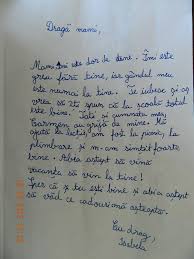 Dragă mami,
Mami îmi este dor de tine. Îmi este
greu fără tine, iar gândul meu
este numai la tine. Te iubesc și aș
vrea să îți spun că la școală totul
este bine. Tati și cumnata mea,
Carmen au grijă de mine. Mă
ajută la lecții, am fost la picnic, la
plimbare și m-am simțit foarte
bine. Abia aștept să vină
vacanța să vin la tine!
Sper că și tu ești bine și abia aștept
să văd ce cadou
Cu drag,
Isabela